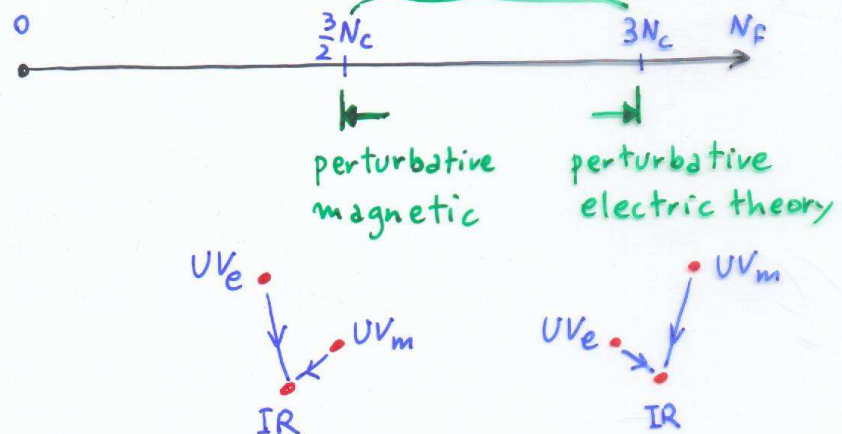 0
3/2 Nc
3Nc
NF
perturbative
magnetic
perturbative
electric theory
UVe
UVm
IR
UVe
UVm
IR